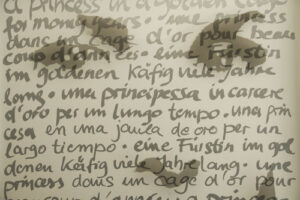 a princess in a golden cage
for money years · une princess
dans un cage d'or pour beau
coup d'années · eine Fürstin
im goldenen Käfig viele Jahre
long · una principessa in carcere
d'oro per un lungo tempo · una prin
cesa en una jaula de oro per un
largo tiempo · eine Fürstin im gol
denen Käfig viele Jahre lang · une
princess dans un cage d'or pour